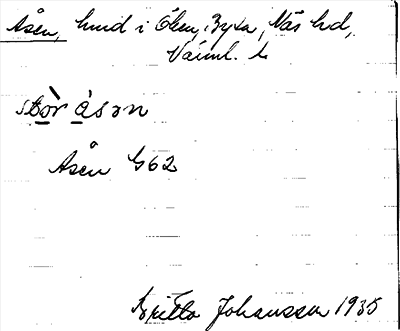 Åsen, hmd i Ölen, By sn, Näs hd,
Värml. l.
stòr àsən
Åsen G62
Britta Johansson 1935